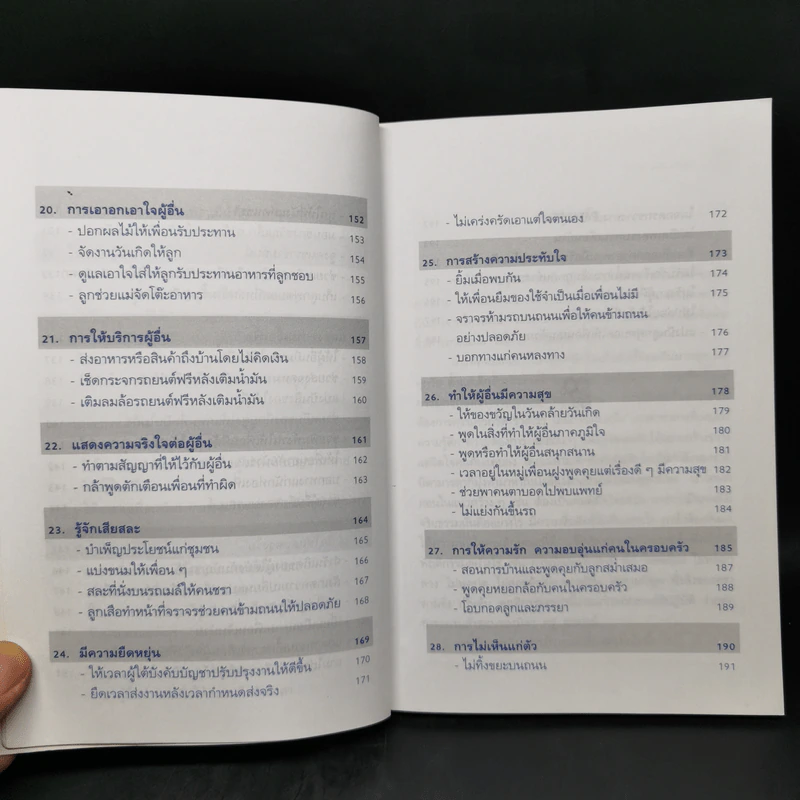 20. การเอาอกเอาใจผู้อื่น 152
- ปอกผลไม้ให้เพื่อนรับประทาน 153
- จัดงานวันเกิดให้ลูก 154
- ดูแลเอาใจใส่ให้ลูกรับประทานอาหารที่ลูกชอบ 155
- ลูกช่วยแม่จัดโต๊ะอาหาร 156
21. การให้บริการผู้อื่น 157
- ส่งอาหารหรือสินค้าถึงบ้านโดยไม่คิดเงิน 158
- เช็ดกระจกรถยนต์ฟรีหลังเติมน้ำมัน 159
- เติมลมล้อรถยนต์ฟรีหลังเติมน้ำมัน 160
22. แสดงความจริงใจต่อผู้อื่น 161
- ทำตามสัญญาที่ให้ไว้กับผู้อื่น 162
- กล้าพูดตักเตือนเพื่อนที่ทำผิด 163
23. รู้จักเสียสละ 164
- บำเพ็ญประโยชน์แก่ชุมชน 165
- แบ่งขนมให้เพื่อน ๆ 166
- สละที่นั่งบนรถเมล์ให้คนชรา 167
- ลูกเสือทำหน้าที่จราจรช่วยคนข้ามถนนให้ปลอดภัย 168
24. มีความยืดหยุ่น 169
- ให้เวลาผู้ใต้บังคับบัญชาปรับปรุงงานให้ดีขึ้น 170
- ยืดเวลาส่งงานหลังเวลากำหนดส่งจริง 171
- ไม่เคร่งครัดเอาแต่ใจตนเอง 172
25. การสร้างความประทับใจ 173
- ยิ้มเมื่อพบกัน 174
- ให้เพื่อนยืมของใช้จำเป็นเมื่อเพื่อนไม่มี 175
- จราจรห้ามรถบนถนนเพื่อให้คนข้ามถนน
อย่างปลอดภัย 176
- บอกทางแก่คนหลงทาง 177
26. ทำให้ผู้อื่นมีความสุข 178
- ให้ของขวัญในวันคล้ายวันเกิด 179
- พูดในสิ่งที่ทำให้ผู้อื่นภาคภูมิใจ 180
- พูดหรือทำให้ผู้อื่นสนุกสนาน 181
- เวลาอยู่ในหมู่เพื่อนฝูงพูดคุยแต่เรื่องดี ๆ มีความสุข 182
- ช่วยพาคนตาบอดไปพบแพทย์ 183
- ไม่แย่งกันขึ้นรถ 184
27. การให้ความรัก ความอบอุ่นแก่คนในครอบครัว 185
- สอนการบ้านและพูดคุยกับลูกสม่ำเสมอ 187
- พูดคุยหยอกล้อกับคนในครอบครัว 188
- โอบกอดลูกและภรรยา 189
28. การไม่เห็นแก่ตัว 190
- ไม่ทิ้งขยะบนถนน 191